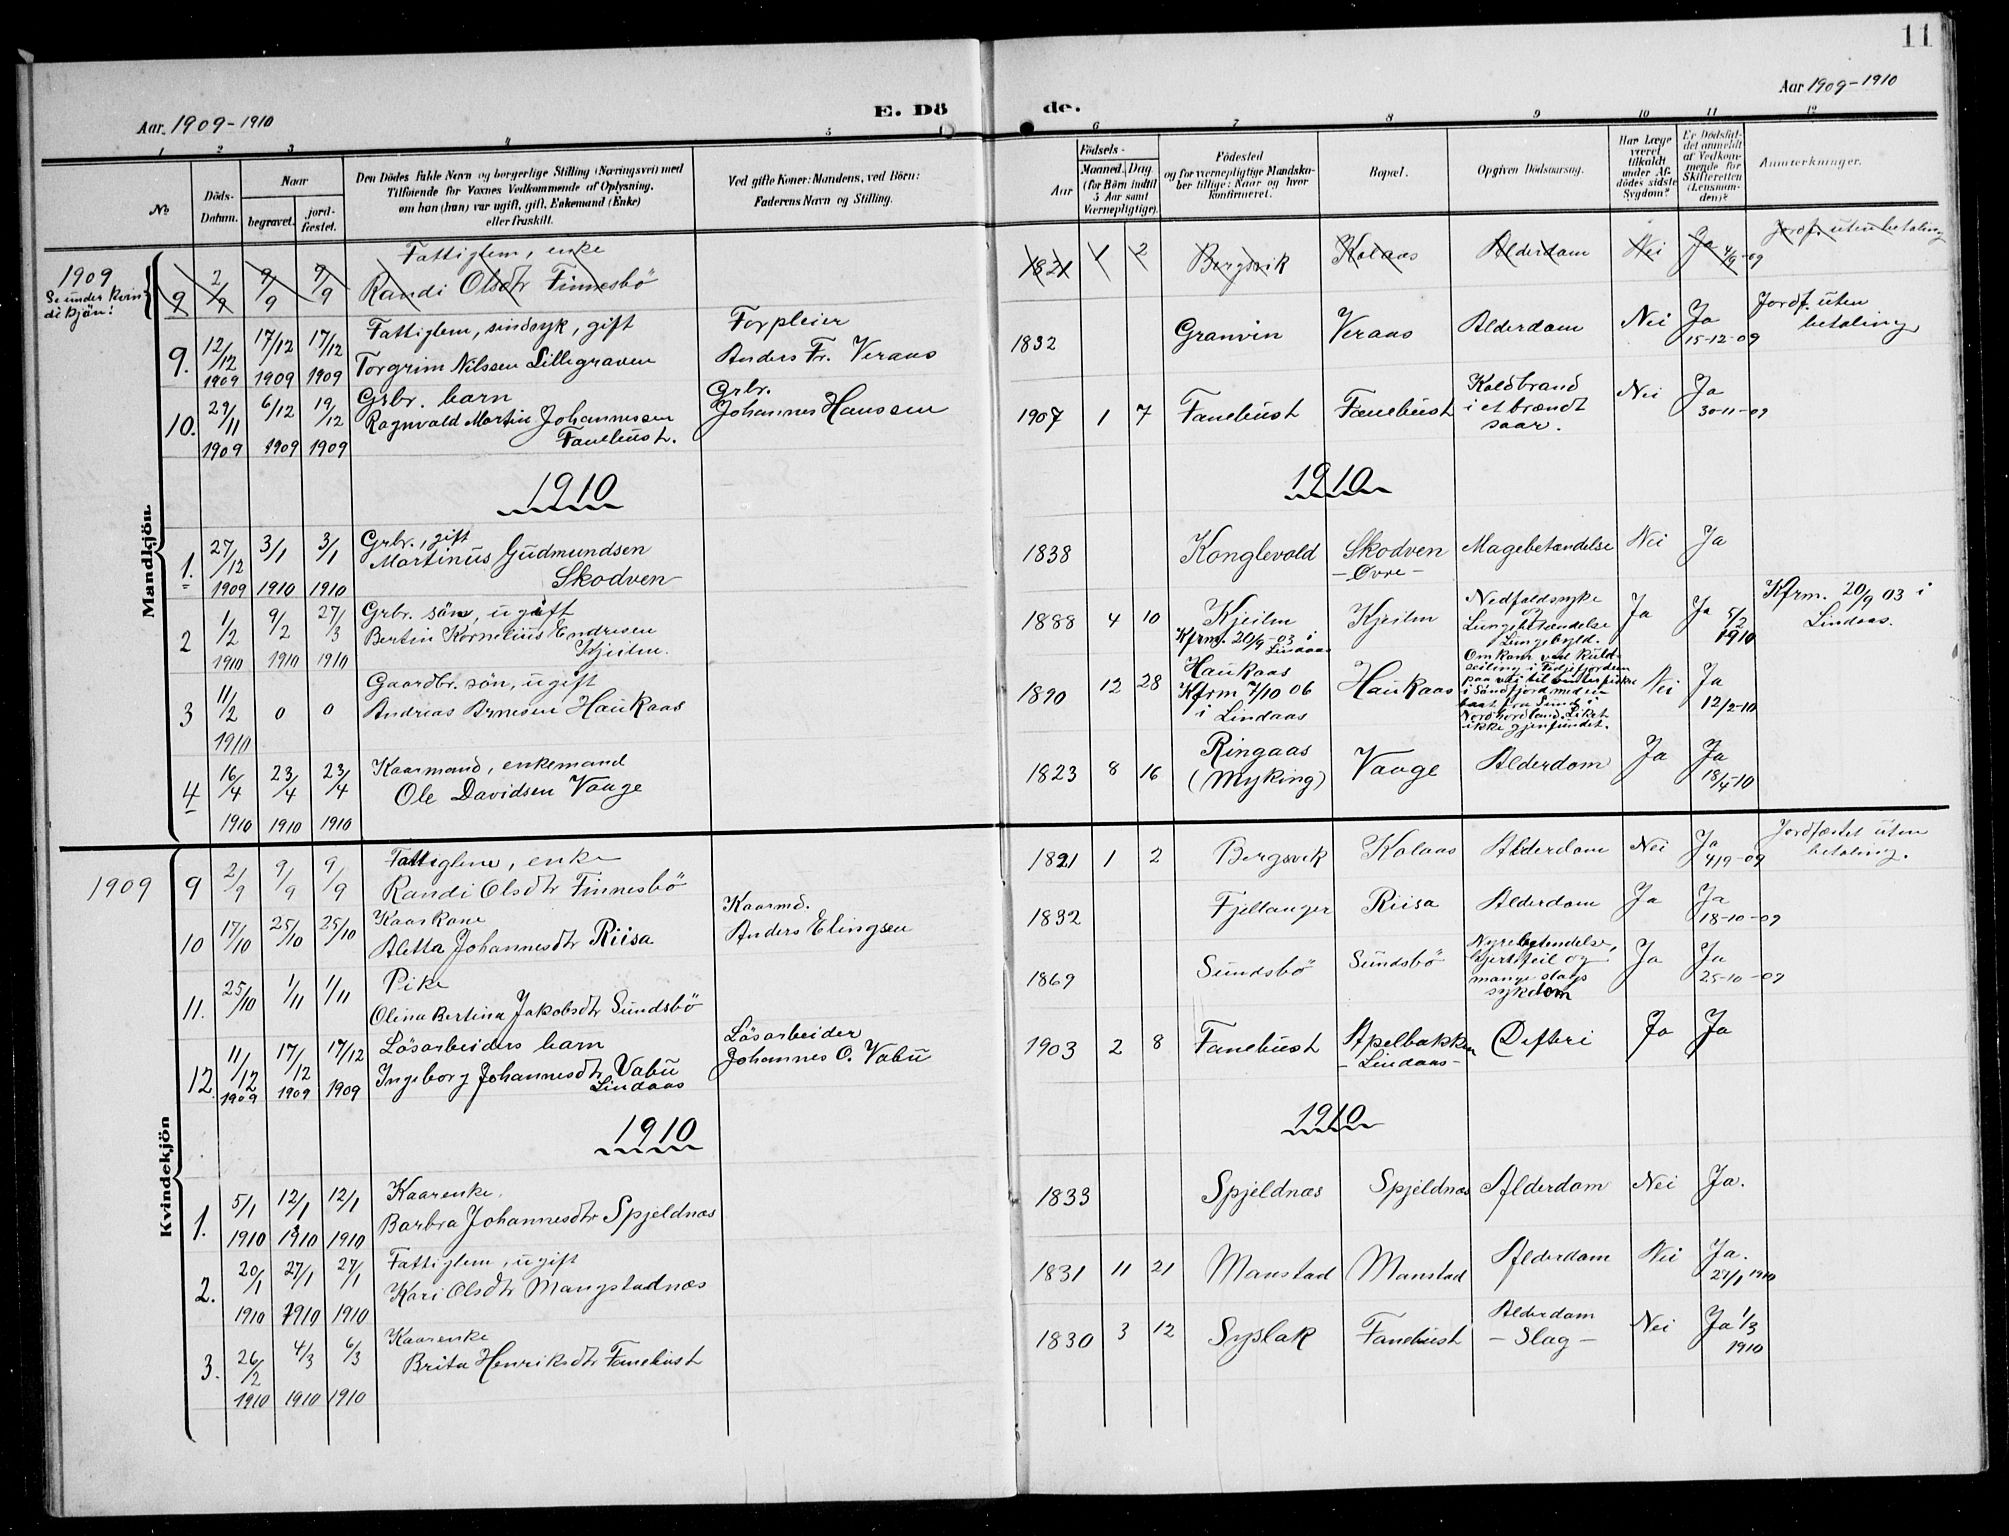 11
Aar. 1909-1910
E. Dö de.
Aar 1909-1910
1 2 3 4 5 6 7 8 9 10 11 12
No
Döds-Datum.
Naar
begravet.
jord-fæstet.
Den Dödes fulde Navn og borgerlige Stilling (Næringsvei) med
Tilföiende for Voxnes Vedkommende af Oplysning,
om han (hun) var ugift, gift, Enkemand (Enke)
eller fraskilt.
Ved gifte Koner: Mandens, ved Börn:
Faderens Navn og Stilling.
Aar
Födsels-
Maaned. Dag
(for Börn indtil
5 Aar samt
Værnepligtige).
Födested
og for værnepligtige Mandska-
ber tillige: Naar og hvor
konfirmeret.
Bopæl.
Opgiven Dödsaarsag.
Har Læge
været
tilkaldt
under Af-
dödes sidste
Sygdom?
Er Dödsfal-
det anmeldt
af Vedkom-
mende for
Skifteretten
(Lensman-
den)?
Anmærkninger.
Mandkjön.
1909
Se under kvin
dekjön!
9 2/9 9/9 9/9 Fattiglem, enke
Randi Olsdtr Finnesbö
1821 1 2 Bergsvik Kolaas Alderdom Nei Ja 4/9-09 Jordf. uten betaling
9. 12/12 1909 17/12 1909 17/12 1909 Fattiglem, sindsyk, gift
Torgrim Nilssen Lillegraven
Forpleier
Anders Fr. Veraas
1832 Granvin Veraas Alderdom Nei Ja 15-12-09 Jordf. uten
betaling
10. 29/11 1909 6/12 1909 19/12 1909 Grbr. barn
Ragnvald Martin Johannessen
Fanebust.
Grbr.
Johannes Hanssen
1907 1 7 Fanebust Fanebust Koldbrand
i et brændt
saar.
Nei Ja 30-11-09
1910 1910
1. 27/12 1909 3/1 1910 3/1 1910 Grbr., gift
Martinus Gudmundsen
Skodven
1838 Konglevold Skodven
- Øvre -
Magebetændelse Nei Ja
2 1/2 1910 9/2 1910 27/3 1910 Grbr. sön, ugift
Bertin Kornelius Endresen
Kjeilen.
1888 4 10 Kjeilen
Kfrm. 20/9-03 i
Lindaas
Kjeilen Nedfaldssyke
og
Lungebetændelse
Lungebyld.
Ja Ja 5/2 1910 Kfrm. 20/9 03 i
Lindaas.
3 11/2 1910 0 0 Gaardbr. sön, ugift
Andreas Arnesen Haukaas
1890 12 28 Haukaas
Kfrm 7/10 06
i Lindaas
Haukaas Omkom ved kuld-
seiling i Fedjefjorden
paa vei til vinterfiske
i Söndfjord med en
baat fra Sund i
Nordhordland. Liket
ikke gjenfundet.
Nei Ja 12/2-10
4 16/4 1910 23/4 1910 23/4 1910 Kaarmand, enkemand
Ole Davidsen Vaage
1823 8 16 Ringaas
(Myking)
Vaage Alderdom Ja Ja 18/4-10
Kvindekjön
1909
9 2/9 9/9 9/9 Fattiglem, enke
Randi Olsdtr Finnesbö
1821 1 2 Bergsvik Kolaas Alderdom Nei Ja 4/9-09 Jordfæstet uten
betaling.
10 17/10 25/10 25/10 Kaarkone
Aletta Johannesdtr Riisa
Kaarmd.
Anders Elingsen
1832 Fjellanger Riisa Alderdom Ja Ja 18-10-09
11. 25/10 1/11 1/11 Pike
Olina Bertina Jakobsdtr Sundsbö
1869 Sundsbö Sundsbö Nyrebetændelse,
hjertefeil og
mange slags
sykdom
Ja Ja 25-10-09
12. 11/12 1909 17/12 1909 17/12 1909 Lösarbeiders barn
Ingeborg Johannesdtr Vabu
Lindaas
Lösarbeider
Johannes O. Vabu
1903 2 8 Fanebust Apelbakken
- Lindaas -
Difteri Ja Ja
1910 1910
1. 5/1 1910 12/1 1910 12/1 1910 Kaarenke.
Barbra Johannesdtr Spjeldnæs
1833 Spjeldnæs Spjeldnæs Alderdom Nei Ja.
2. 20/1 1910 27/1 1910 27/1 1910 Fattiglem, ugift
Kari Olsdtr Mangstadnæs
1831 11 21 Manstad Manstad Alderdom Nei Ja. 27/1 1910
3. 26/2 1910 4/3 1910 6/3 1910 Kaarenke
Brita Henriksdtr Fanebust
1830 3 12 Syslak Fanebust Alderdom
- Slag -
Nei Ja 1/3 1910